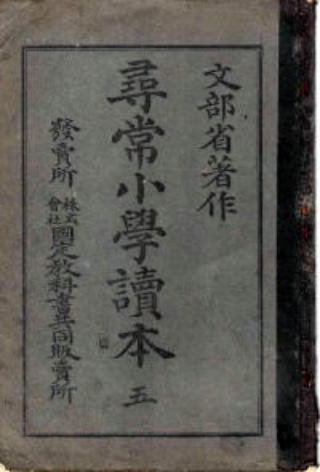 文部省著作
尋常小學讀本 五
發賣所 株式會社國定教科書共同販賣所